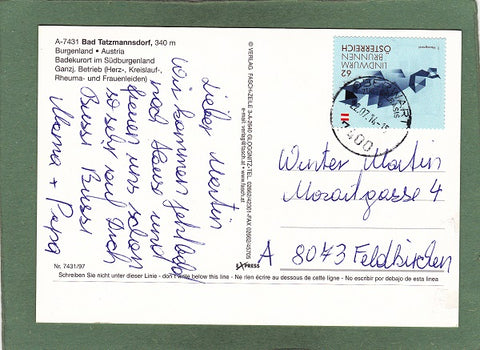 A-7431 Bad Tatzmannsdorf, 340 m
Burgenland • Austria
Badekurort im Südburgenland
Ganzj. Betrieb (Herz-, Kreislauf-,
Rheuma- und Frauenheilkunde)
Lieber Martin
Wir kommen jetzt bald
nach Hause und
freuen uns schon
so sehr auf Dich
Bussi Bussi
Mama + Papa
Nr. 7431/97
© VERLAG
EXPRESS
62
LINDWURM
BRUNNEN
ÖSTERREICH
.07.14-15
7400
Winter Martin
Mozartgasse 4
A 8073 Feldkirchen
Schreiben Sie nicht unter dieser Linie - don't write below this line - Ne rien écrire au dessous de cette ligne - No escribir por debajo de esta linea